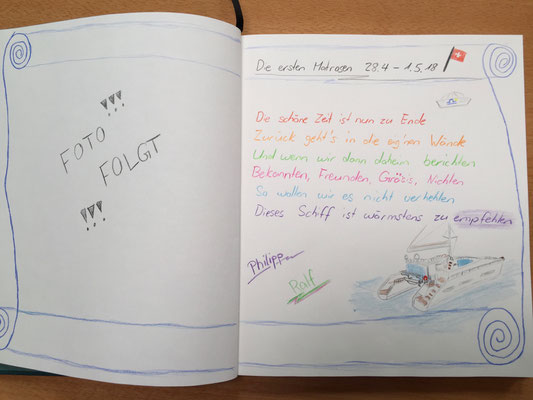 !!!
FOTO
FOLGT
!!!
Die ersten Matrosen 28.4 - 1.5.18
Die schöne Zeit ist nun zu Ende
Zurück geht's in die eig'nen Wände
Und wenn wir dann daheim berichten
Bekannten, Freunden, Grosis, Nichten
So wollen wir es nicht verhehlen
Dieses Schiff ist wärmstens zu empfehlen
Philipp
Ralf